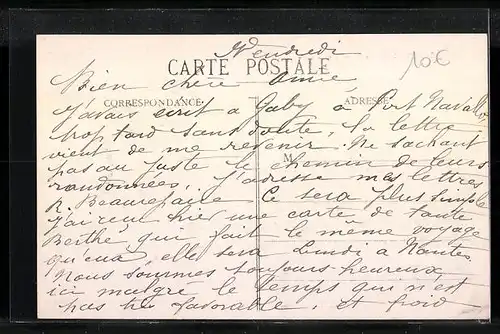 Vendredi
10€
CARTE POSTALE
Bien chère Amie
CORRESPONDANCE
ADRESSE
J'avais écrit à Gaby à Port Navallo
trop tard sans doute, la lettre
vient de me revenir. Ne sachant
M
pas au juste le chemin de leurs
randonnées, j'adresse mes lettres
R. Beaurepaire ce sera plus simple
J'ai reçu hier une carte de tante
Berthe qui fait le même voyage
qu'eux, elle sera Lundi à Nantes
Nous sommes toujours heureux
ici malgré le temps qui n'est
pas très favorable, et froid